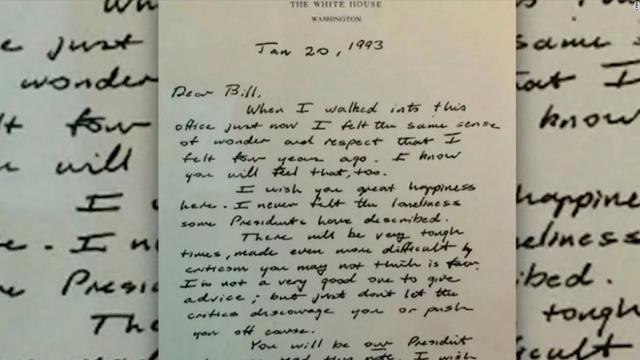 THE WHITE HOUSE
WASHINGTON
Jan 20, 1993
Dear Bill,
When I walked into this
office just now I felt the same sense
of wonder and respect that I
felt four years ago. I know
you will feel that, too.
I wish you great happiness
here. I never felt the loneliness
some Presidents have described.
There will be very tough
times, made even more difficult by
criticism you may not think is fair.
I'm not a very good one to give
advice; but just don't let the
critics discourage you or push
you off course.
You will be our President
read this note. I wish